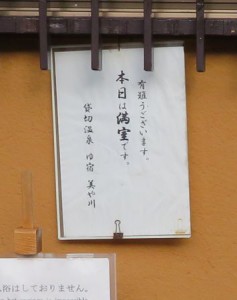 有難うございます。
本日は満室です。
貸切温泉 の宿 美や川
浴はしておりません。